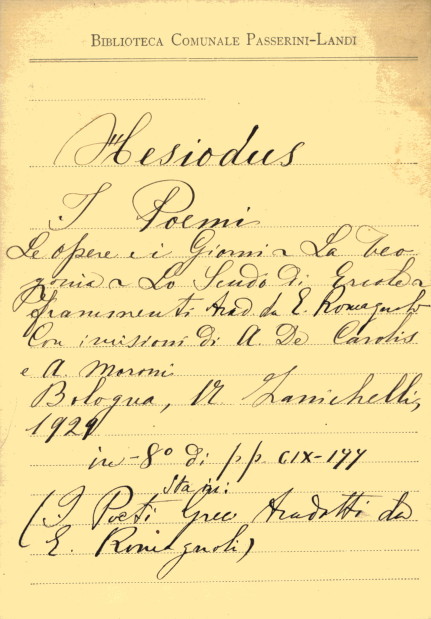 BIBLIOTECA COMUNALE PASSERINI-LANDI
Hesiodus
I Poemi
Le opere e i Giorni ~ La Teo-
gonia ~ Lo Scudo di Ercole ~
frammenti Trad. da E. Romagnoli
Con incisioni di A. De Carolis
e A. Moroni
Bologna, N Zanichelli,
1929
in-8° di pp. CIX-199
(I Poeti Greci Tradotti da
E. Romagnoli)